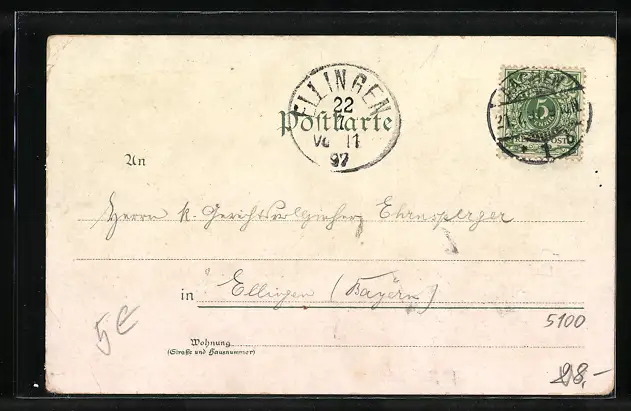 ELLINGEN
22
7
Vo 11
97
Postkarte
AACHEN
21.7.
1
5
An
Herrn k. Gerichtsvollzieher Ehrnsperger
in Ellingen (Bayern)
5100
5€
Wohnung
(Straße und Hausnummer)
28,-